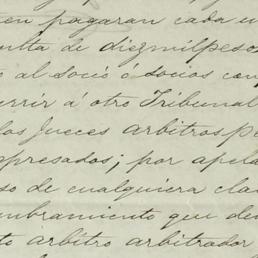 en pagaran cada u
ulta de diezmilpeso
o al socio ó socios con
urrir á otro Tribunal
los Jueces arbitros pe
apresados; por apela
so de cualquiera cla
mbramiento que de
to arbitro arbitrador